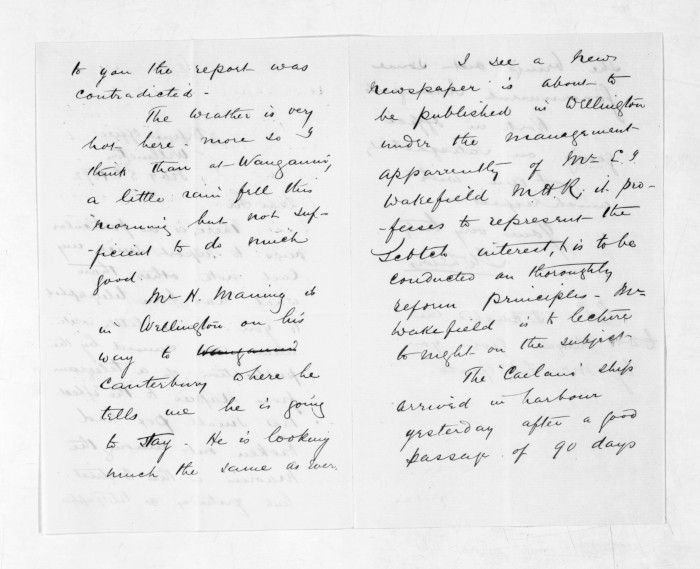 to you the report was
contradicted -
The weather is very
hot here - more so I
think than at Wanganui,
a little rain fell this
morning but not suf-
-ficient to do much
good.
Mr H. Maning is
in Wellington on his
way to Wanganui
Canterbury where he
tells me he is going
to stay. He is looking
much the same as ever.
I see a New
newspaper is about to
be published in Wellington
under the management
apparently of Mr E J
Wakefield M.H.R; it pro-
-fesses to represent the
Scotch interest, & is to be
conducted on thoroughly
reform principles - Mr
Wakefield is to lecture
to night on the subject.
The ship
arrived in harbour
yesterday after a good
passage of 90 days